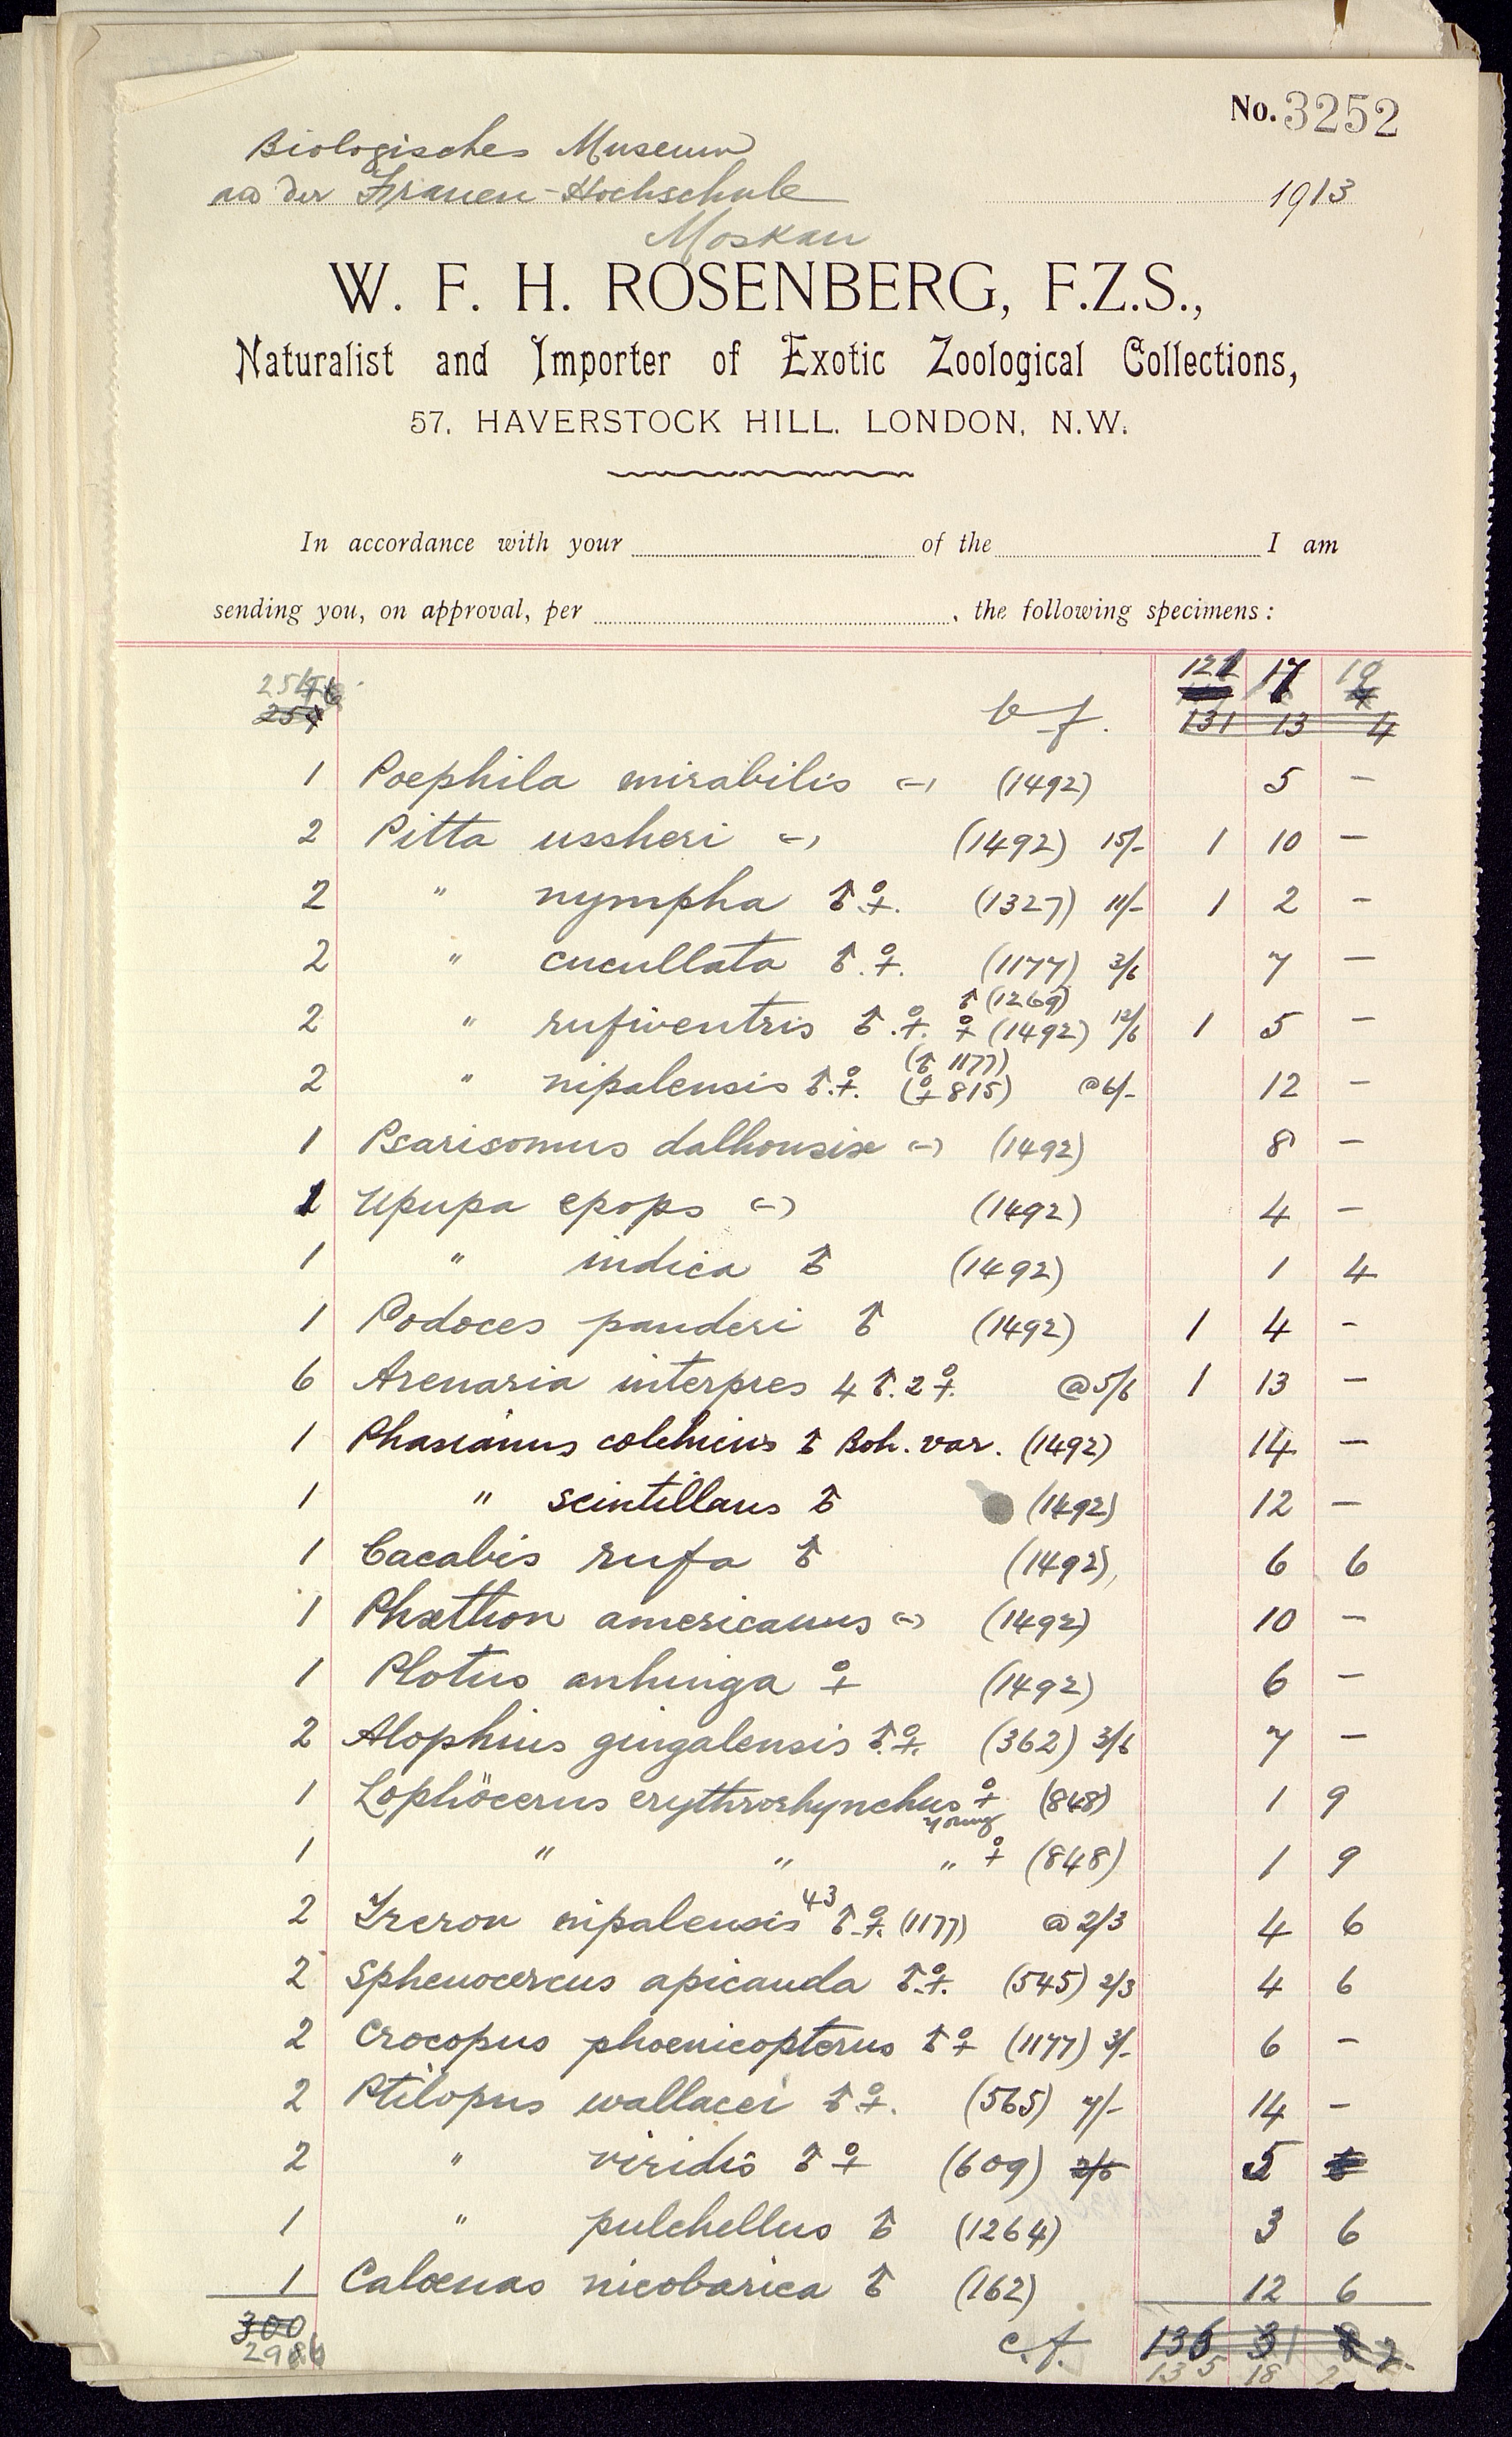 No. 3252
Biologisches Museum
an der Frauen-Hochschule
1913
Moskau
W. F. H. ROSENBERG, F.Z.S.,
Naturalist and Importer of Exotic Zoological Collections,
57, HAVERSTOCK HILL, LONDON, N.W.
In accordance with your of the I am
sending you, on approval, per , the following specimens :
b f. 17
131 13 4
1 Poephila mirabilis (-) (1492) 5 -
2 Pitta ussheri (-) (1492) 15/- 1 10 -
2 " nympha ♂.♀. (1327) 11/- 1 2 -
2 " cucullata ♂.♀. (1177) 3/6 7 -
♂ (1269)
2 " rufiventris ♂.♀. ♀ (1492) 12/6 1 5 -
(♂ 1177)
2 " nipalensis ♂.♀. (♀ 815) @ 6/- 12 -
1 Psarisomus dalhousiæ (-) (1492) 8 -
1 Upupa epops (-) (1492) 4 -
1 " indica ♂ (1492) 1 4
1 Podoces panderi ♂ (1492) 1 4 -
6 Arenaria interpres 4 ♂. 2 ♀. @ 5/6 1 13 -
1 Phasianus colchicus ♂ Boh. var. (1492) 14 -
1 " scintillans ♂ (1492) 12 -
1 Caccabis rufa ♂ (1492) 6 6
1 Phæthon americanus (-) (1492) 10 -
1 Plotus anhinga ♀ (1492) 6 -
2 Alophius gingalensis ♂.♀. (362) 3/6 7 -
1 Lophöcerus erythrorhynchus ♀ (848) 1 9
young
1 " " " ♀ (848) 1 9
43
2 Treron nipalensis ♂.♀. (1177) @ 2/3 4 6
2 Sphenocercus apicauda ♂.♀. (545) 2/3 4 6
2 Crocopus phoenicopterus ♂ ♀ (1177) 3/- 6 -
2 Ptilopus wallacei ♂ ♀. (565) 7/- 14 -
2 " viridis ♂ ♀ (609) 2/6 5
1 " pulchellus ♂ (1264) 3 6
1 Caloenas nicobarica ♂ (162) 12 6
300 c.f.
135 18 2